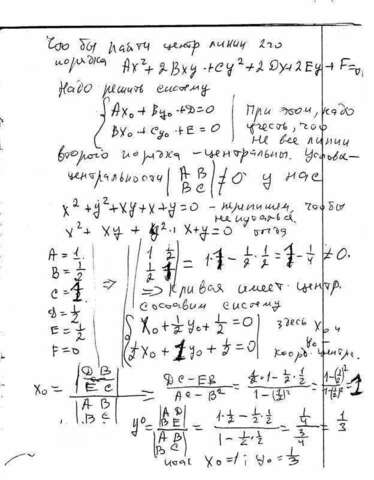 Что бы найти центр линии 2го
порядка Ax²+2Bxy+Cy²+2Dx+2Ey+F=0,
Надо решить систему
{ Ax₀+By₀+D=0
Bx₀+Cy₀+E=0 | При этом, надо
учесть, что
не все линии
второго порядка - центральны. Услови-
центральности |A B; B C| ≠0 у нас
x²+y²+xy+x+y=0 - перепишем, чтобы
не путаться
x²+xy+y²+x+y=0 тогда
A=1
B=1/2
C=1
D=1/2
E=1/2
F=0
⇒ |1 1/2; 1/2 1| = 1·1-1/2·1/2=1-1/4≠0.
⇒ Кривая имеет центр.
составим систему
{ x₀+1/2y₀+1/2=0
1/2x₀+1y₀+1/2=0 | здесь x₀ и
y₀ -
коорд. центра.
x₀ = |D B; E C| / |A B; B C| = (DC-EB)/(AC-B²) = (1/2·1-1/2·1/2)/(1-(1/2)²) = (1-(1/2)²)/(1-(1/2)²) = 1
y⁰ = |A D; B E| / |A B; B C| = (1·1/2-1/2·1/2)/(1-1/2·1/2) = (1/4)/(3/4) = 1/3
x₀=1; y₀=1/3